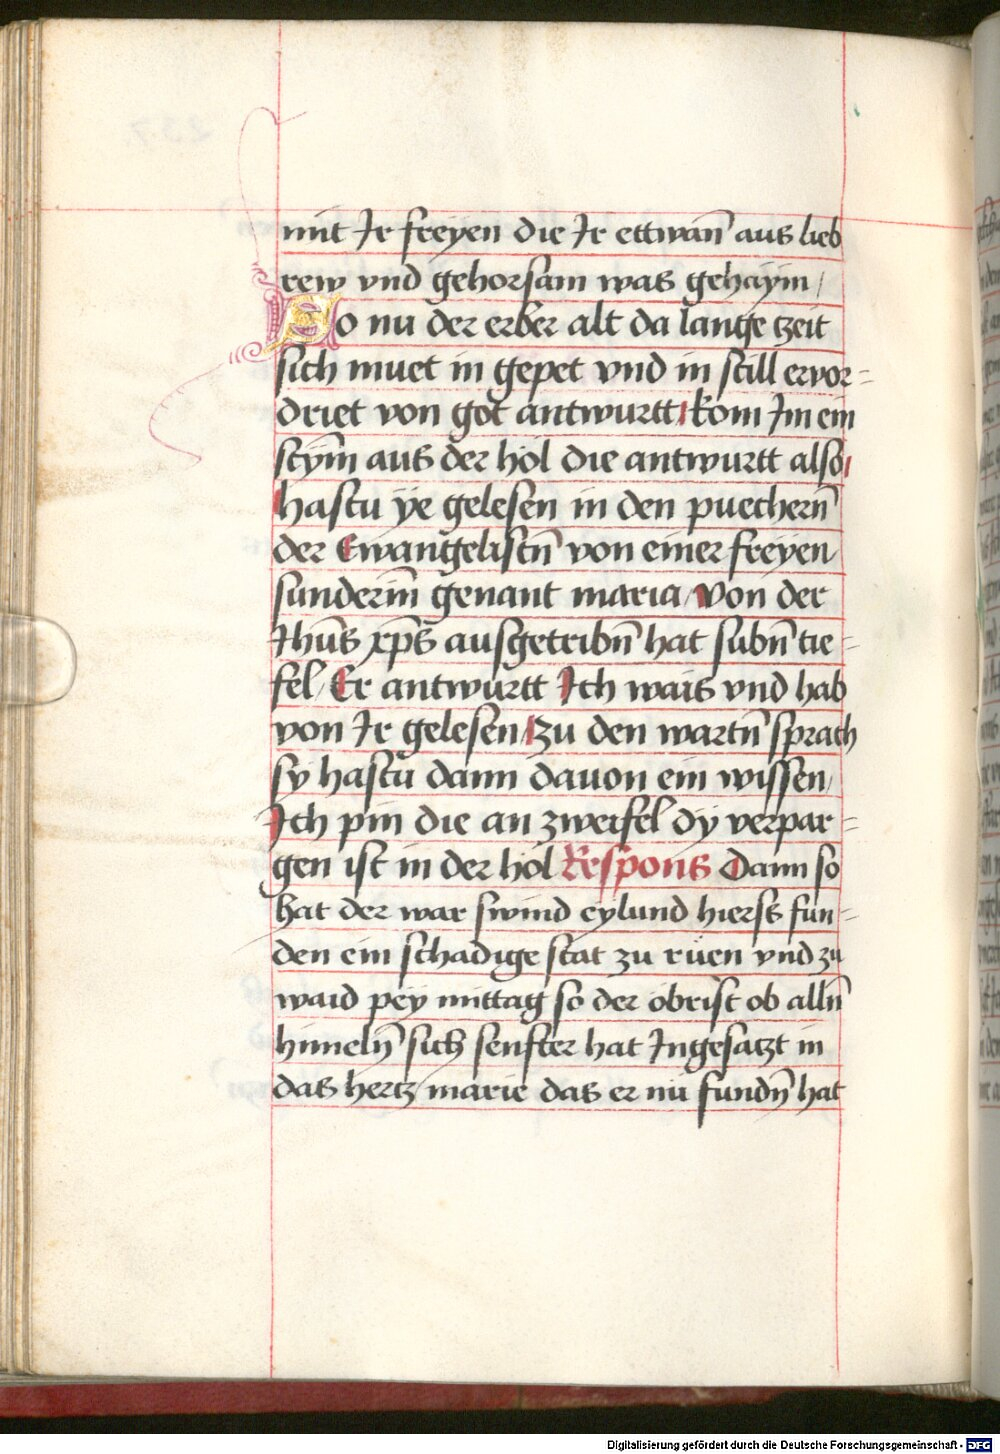 mit Ir freyen die Ir ettwañ aus lieb
rew vnd gehorsam was gehaym /
Do nu der erber alt da lange zeit
sich muet in gepet vnd in still ervor=
driet von got antwurtt / kom Im ein
stym̃ aus der hol die antwurtt also /
hastu ye gelesen in den puecherñ
der Ewangelistñ von einer freyen
sunderiñ genant maria / Von der
Ihũs xp̃s ausgetribñ hat subñ tie=
fel / Er antwurtt Ich wais vnd hab
von Ir gelesen / Zu den wartñ sprach
sy hastu dann dauon ein wissen /
Ich pin die an zweifel dy verpar=
gen ist in der hol Respons Dann so
hat der war swind eylund hierss fun=
den ein schadige stat zu rüen vnd zu
waid pey mittag so der obrist ob allñ
himelñ sich senfter hat Ingesatzt in
das hertz marie das er nu fundñ hat
Digitalisierung gefördert durch die Deutsche Forschungsgemeinschaft - DFG